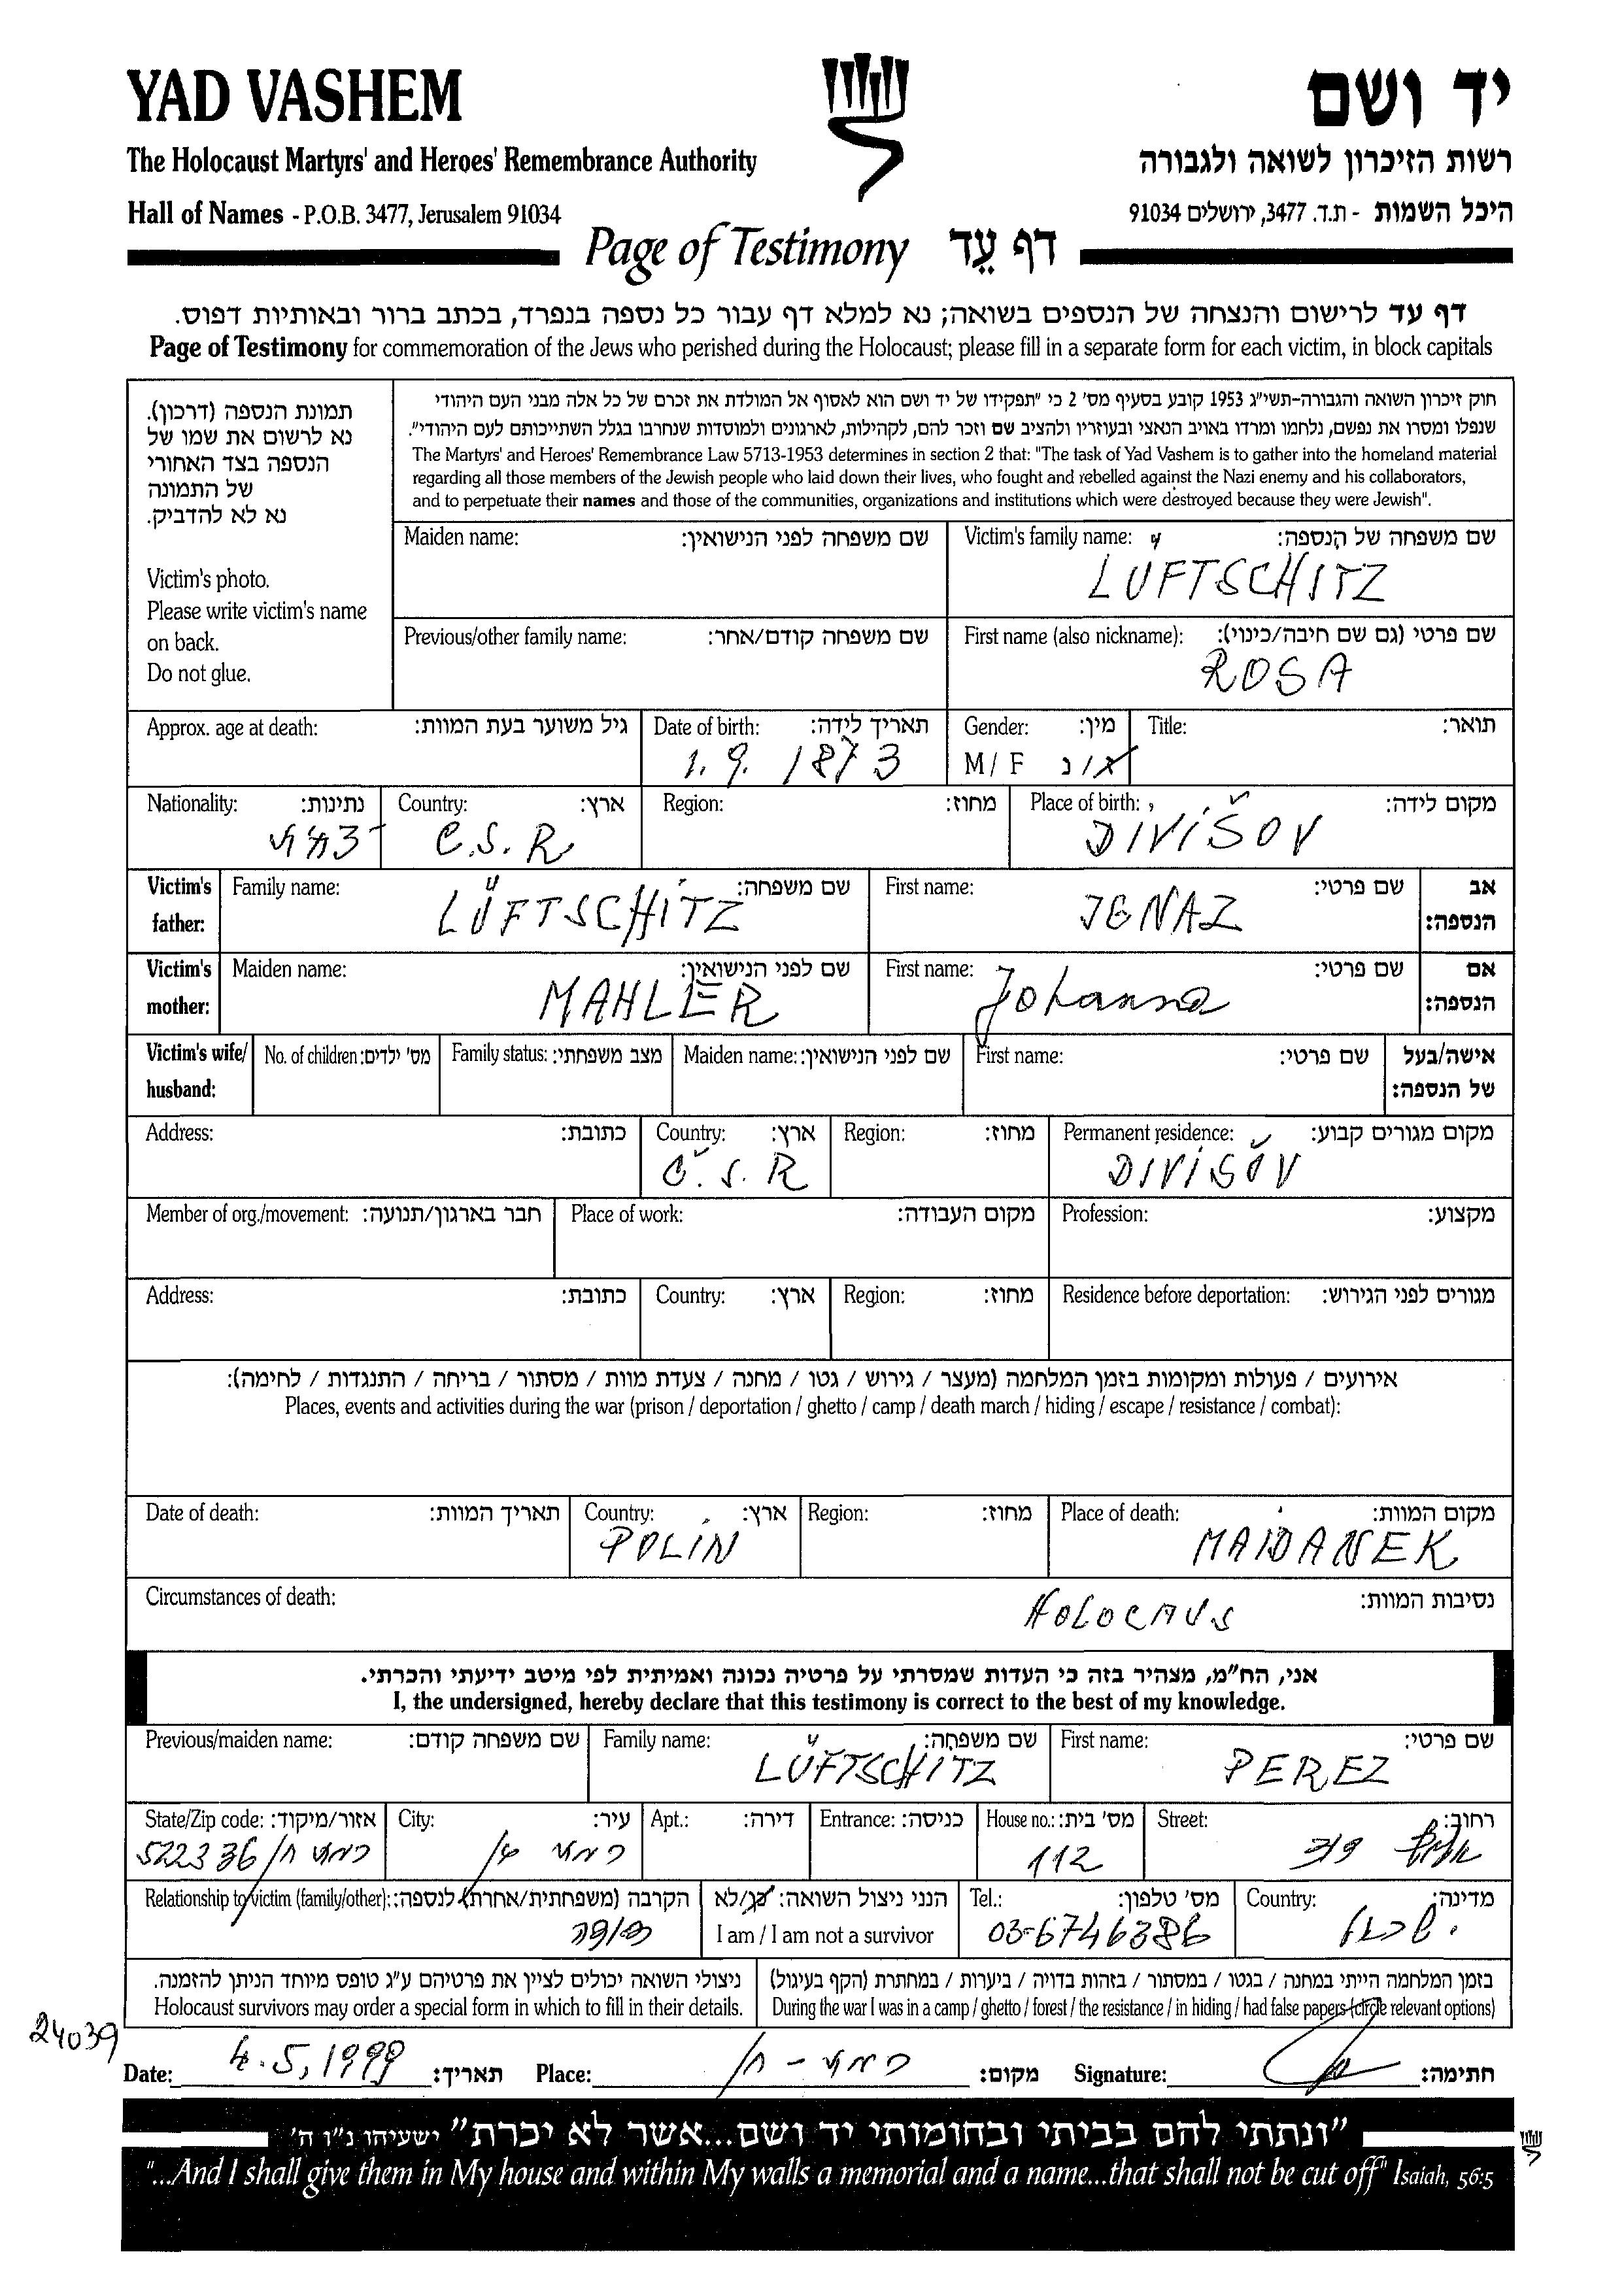 YAD VASHEM
יד ושם
The Holocaust Martyrs' and Heroes' Remembrance Authority
רשות הזיכרון לשואה ולגבורה
Hall of Names - P.O.B. 3477, Jerusalem 91034
היכל השמות - ת.ד. 3477, ירושלים 91034
Page of Testimony דף עֵד
דף עד לרישום והנצחה של הנספים בשואה; נא למלא דף עבור כל נספה בנפרד, בכתב ברור ובאותיות דפוס.
Page of Testimony for commemoration of the Jews who perished during the Holocaust; please fill in a separate form for each victim, in block capitals
תמונת הנספה (דרכון).
נא לרשום את שמו של
הנספה בצד האחורי
של התמונה
נא לא להדביק.
Victim's photo.
Please write victim's name
on back.
Do not glue.
חוק זיכרון השואה והגבורה-תשי"ג 1953 קובע בסעיף מס' 2 כי "תפקידו של יד ושם הוא לאסוף אל המולדת את זכרם של כל אלה מבני העם היהודי
שנפלו ומסרו את נפשם, נלחמו ומרדו באויב הנאצי ובעוזריו ולהציב שם וזכר להם, לקהילות, לארגונים ולמוסדות שנחרבו בגלל השתייכותם לעם היהודי".
The Martyrs' and Heroes' Remembrance Law 5713-1953 determines in section 2 that: "The task of Yad Vashem is to gather into the homeland material
regarding all those members of the Jewish people who laid down their lives, who fought and rebelled against the Nazi enemy and his collaborators,
and to perpetuate their names and those of the communities, organizations and institutions which were destroyed because they were Jewish".
Maiden name: שם משפחה לפני הנישואין:
Victim's family name: שם משפחה של הנספה:
LÜFTSCHITZ
Previous/other family name: שם משפחה קודם/אחר:
First name (also nickname): שם פרטי (גם שם חיבה/כינוי):
ROSA
Approx. age at death: גיל משוער בעת המוות:
Date of birth: תאריך לידה:
1.9. 1873
Gender: מין:
M / F ז/נ
Title: תואר:
Nationality: נתינות:
Country: ארץ:
C.S.R
Region: מחוז:
Place of birth: מקום לידה:
DIVIŠOV
Victim's father: Family name: שם משפחה:
LÜFTSCHITZ
First name: שם פרטי:
JGNAZ
אב הנספה:
Victim's mother: Maiden name: שם לפני הנישואין:
MAHLER
First name: שם פרטי:
Johanna
אם הנספה:
Victim's wife/husband: No. of children: מס' ילדים: Family status: מצב משפחתי: Maiden name: שם לפני הנישואין: First name: שם פרטי: אישה/בעל של הנספה:
Address: כתובת:
Country: ארץ:
Č.S.R
Region: מחוז:
Permanent residence: מקום מגורים קבוע:
DIVIŠOV
Member of org./movement: חבר בארגון/תנועה: Place of work: מקום העבודה: Profession: מקצוע:
Address: כתובת: Country: ארץ: Region: מחוז: Residence before deportation: מגורים לפני הגירוש:
אירועים / פעולות ומקומות בזמן המלחמה (מעצר / גירוש / גטו / מחנה / צעדת מוות / מסתור / בריחה / התנגדות / לחימה):
Places, events and activities during the war (prison / deportation / ghetto / camp / death march / hiding / escape / resistance / combat):
Date of death: תאריך המוות:
Country: ארץ:
POLIN
Region: מחוז:
Place of death: מקום המוות:
MAIDANEK
Circumstances of death: נסיבות המוות:
HOLOCAUS
אני, הח"מ, מצהיר בזה כי העדות שמסרתי על פרטיה נכונה ואמיתית לפי מיטב ידיעתי והכרתי.
I, the undersigned, hereby declare that this testimony is correct to the best of my knowledge.
Previous/maiden name: שם משפחה קודם:
Family name: שם משפחה:
LÜFTSCHITZ
First name: שם פרטי:
PEREZ
State/Zip code: אזור/מיקוד:
522336 רמת
City: עיר:
רמת
Apt.: דירה: Entrance: כניסה:
House no.: מס' בית:
112
Street: רחוב:
Relationship to victim (family/other): הקרבה (משפחתית/אחרת) לנספה:
הנני ניצול השואה: כן/לא
I am / I am not a survivor
Tel.: מס' טלפון:
03-6746386
Country: מדינה:
ישראל
ניצולי השואה יכולים לציין את פרטיהם ע"ג טופס מיוחד הניתן להזמנה.
Holocaust survivors may order a special form in which to fill in their details.
בזמן המלחמה הייתי במחנה / בגטו / במסתור / בזהות בדויה / ביערות / במחתרת (הקף בעיגול)
During the war I was in a camp / ghetto / forest / the resistance / in hiding / had false papers (circle relevant options)
24039
Date: 4.5,1999 תאריך: Place: רמת - מקום: Signature: חתימה:
"ונתתי להם בביתי ובחומותי יד ושם...אשר לא יכרת" ישעיהו נ"ו ה'
"...And I shall give them in My house and within My walls a memorial and a name...that shall not be cut off" Isaiah, 56:5